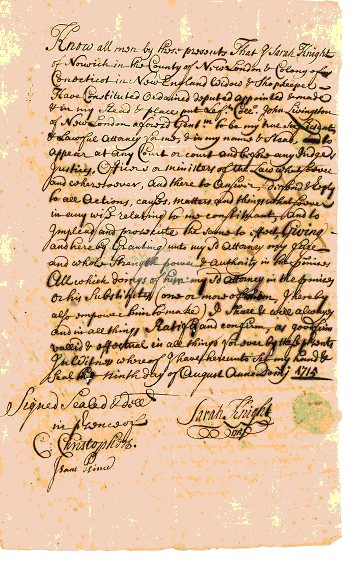 Know all men by these presents That I Sarah Knight
of Norwich in the County of New London & Colony of
Connecticot in New England Widow & Shopkeeper
Have Constituted Ordained deputed appointed & made
& in my Stead & place put my John Livingston
of New London aforesd to be my true
& Lawful Attorney for me, & in my name & Stead, to
appear at any Court or court and before any Judges
Justices, Officers or ministers of the Law whatsoever
and wheresoever, and there to Answer defend & reply
to all Actions, causes matters and things whatsoever
in any wise relating to me constituant, and to
Implead and prosecute the same to effect, Giving
and hereby Granting unto my Sd Attorney my
and whole Strength power & Authority in the premises
All which doings of him my Sd Attorney in the premises
or his Substitutes (one or more of them, I hereby
also empower him to make) I Shall & will always
and in all things Ratifie and confirm, as good
valled & effectual in all things for ever by these presents
In Witness whereof I have hereunto Set my hand &
Seal the Ninth day of August Annoo 1715
Signed Sealed & dd
in presence of
Sarah Knight
Christophers
Isaac